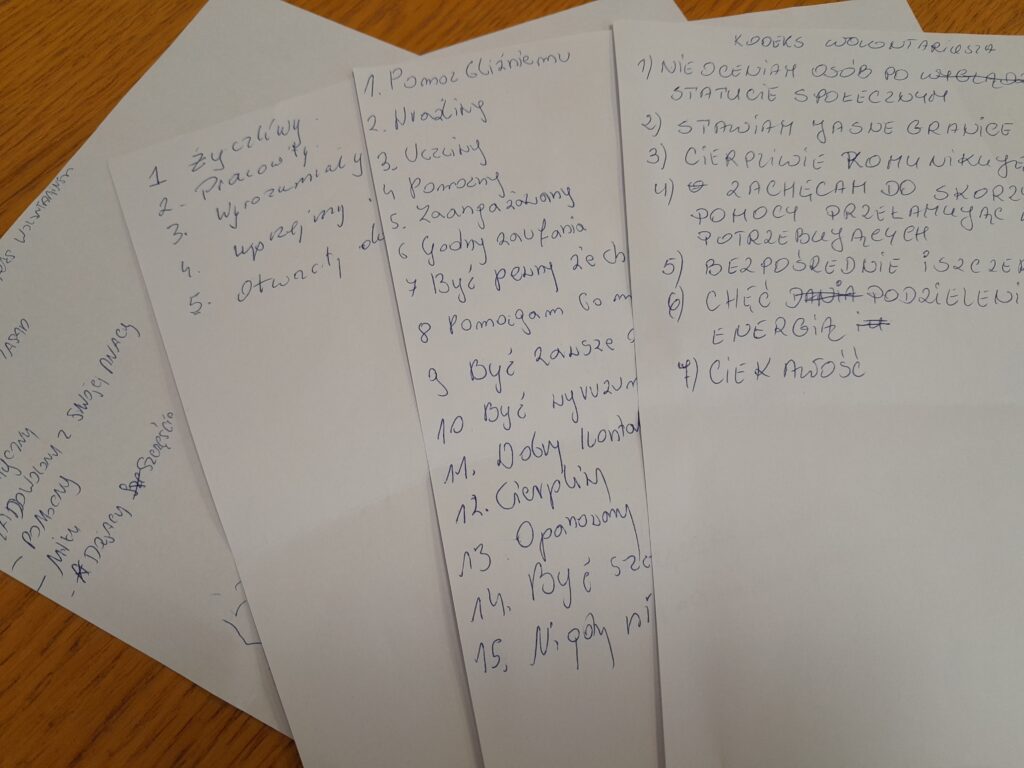 ZASAD
ZADOWOLONY Z SWOJEJ PRACY
- POMOCNY
- DZIĘKI SZCZĘŚCIU
1 Życzliwy
2. Pracowity
3. Wyrozumiały
4. uprzejmy
5. otwarty
1. Pomoc bliźniemu
2. Wrażliwy
3. Uczciwy
4 Pomocny
5. Zaangażowany
6 Godny zaufania
7 Być pewny że ch
8 Pomagam Co m
9 Być zawsze
10 Być wyrozum
11. Dobry konta
12. Cierpliwy
13 Opanowany
14. Być szc
15. Nigdy ni
KODEKS WOLONTARIUSZA
1) NIE OCENIAM OSÓB PO
STATUCIE SPOŁECZNYM
2) STAWIAM JASNE GRANICE
3) CIERPLIWIE KOMUNIKUJĘ
4) ZACHĘCAM DO SKORZY
POMOCY PRZEŁAMUJĄC
POTRZEBUJĄCYCH
5) BEZPOŚREDNIE I SZCZER
6) CHĘĆ PODZIELENI
ENERGIĄ
7) CIEKAWOŚĆ